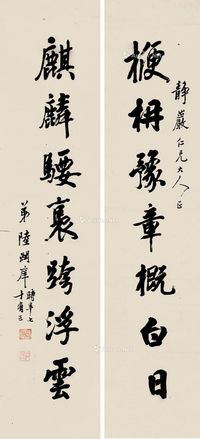 静巖仁兄大人正
楩枬豫章概白日
麒麟騕褭跨浮雲
弟陸潤庠
時年七
十有